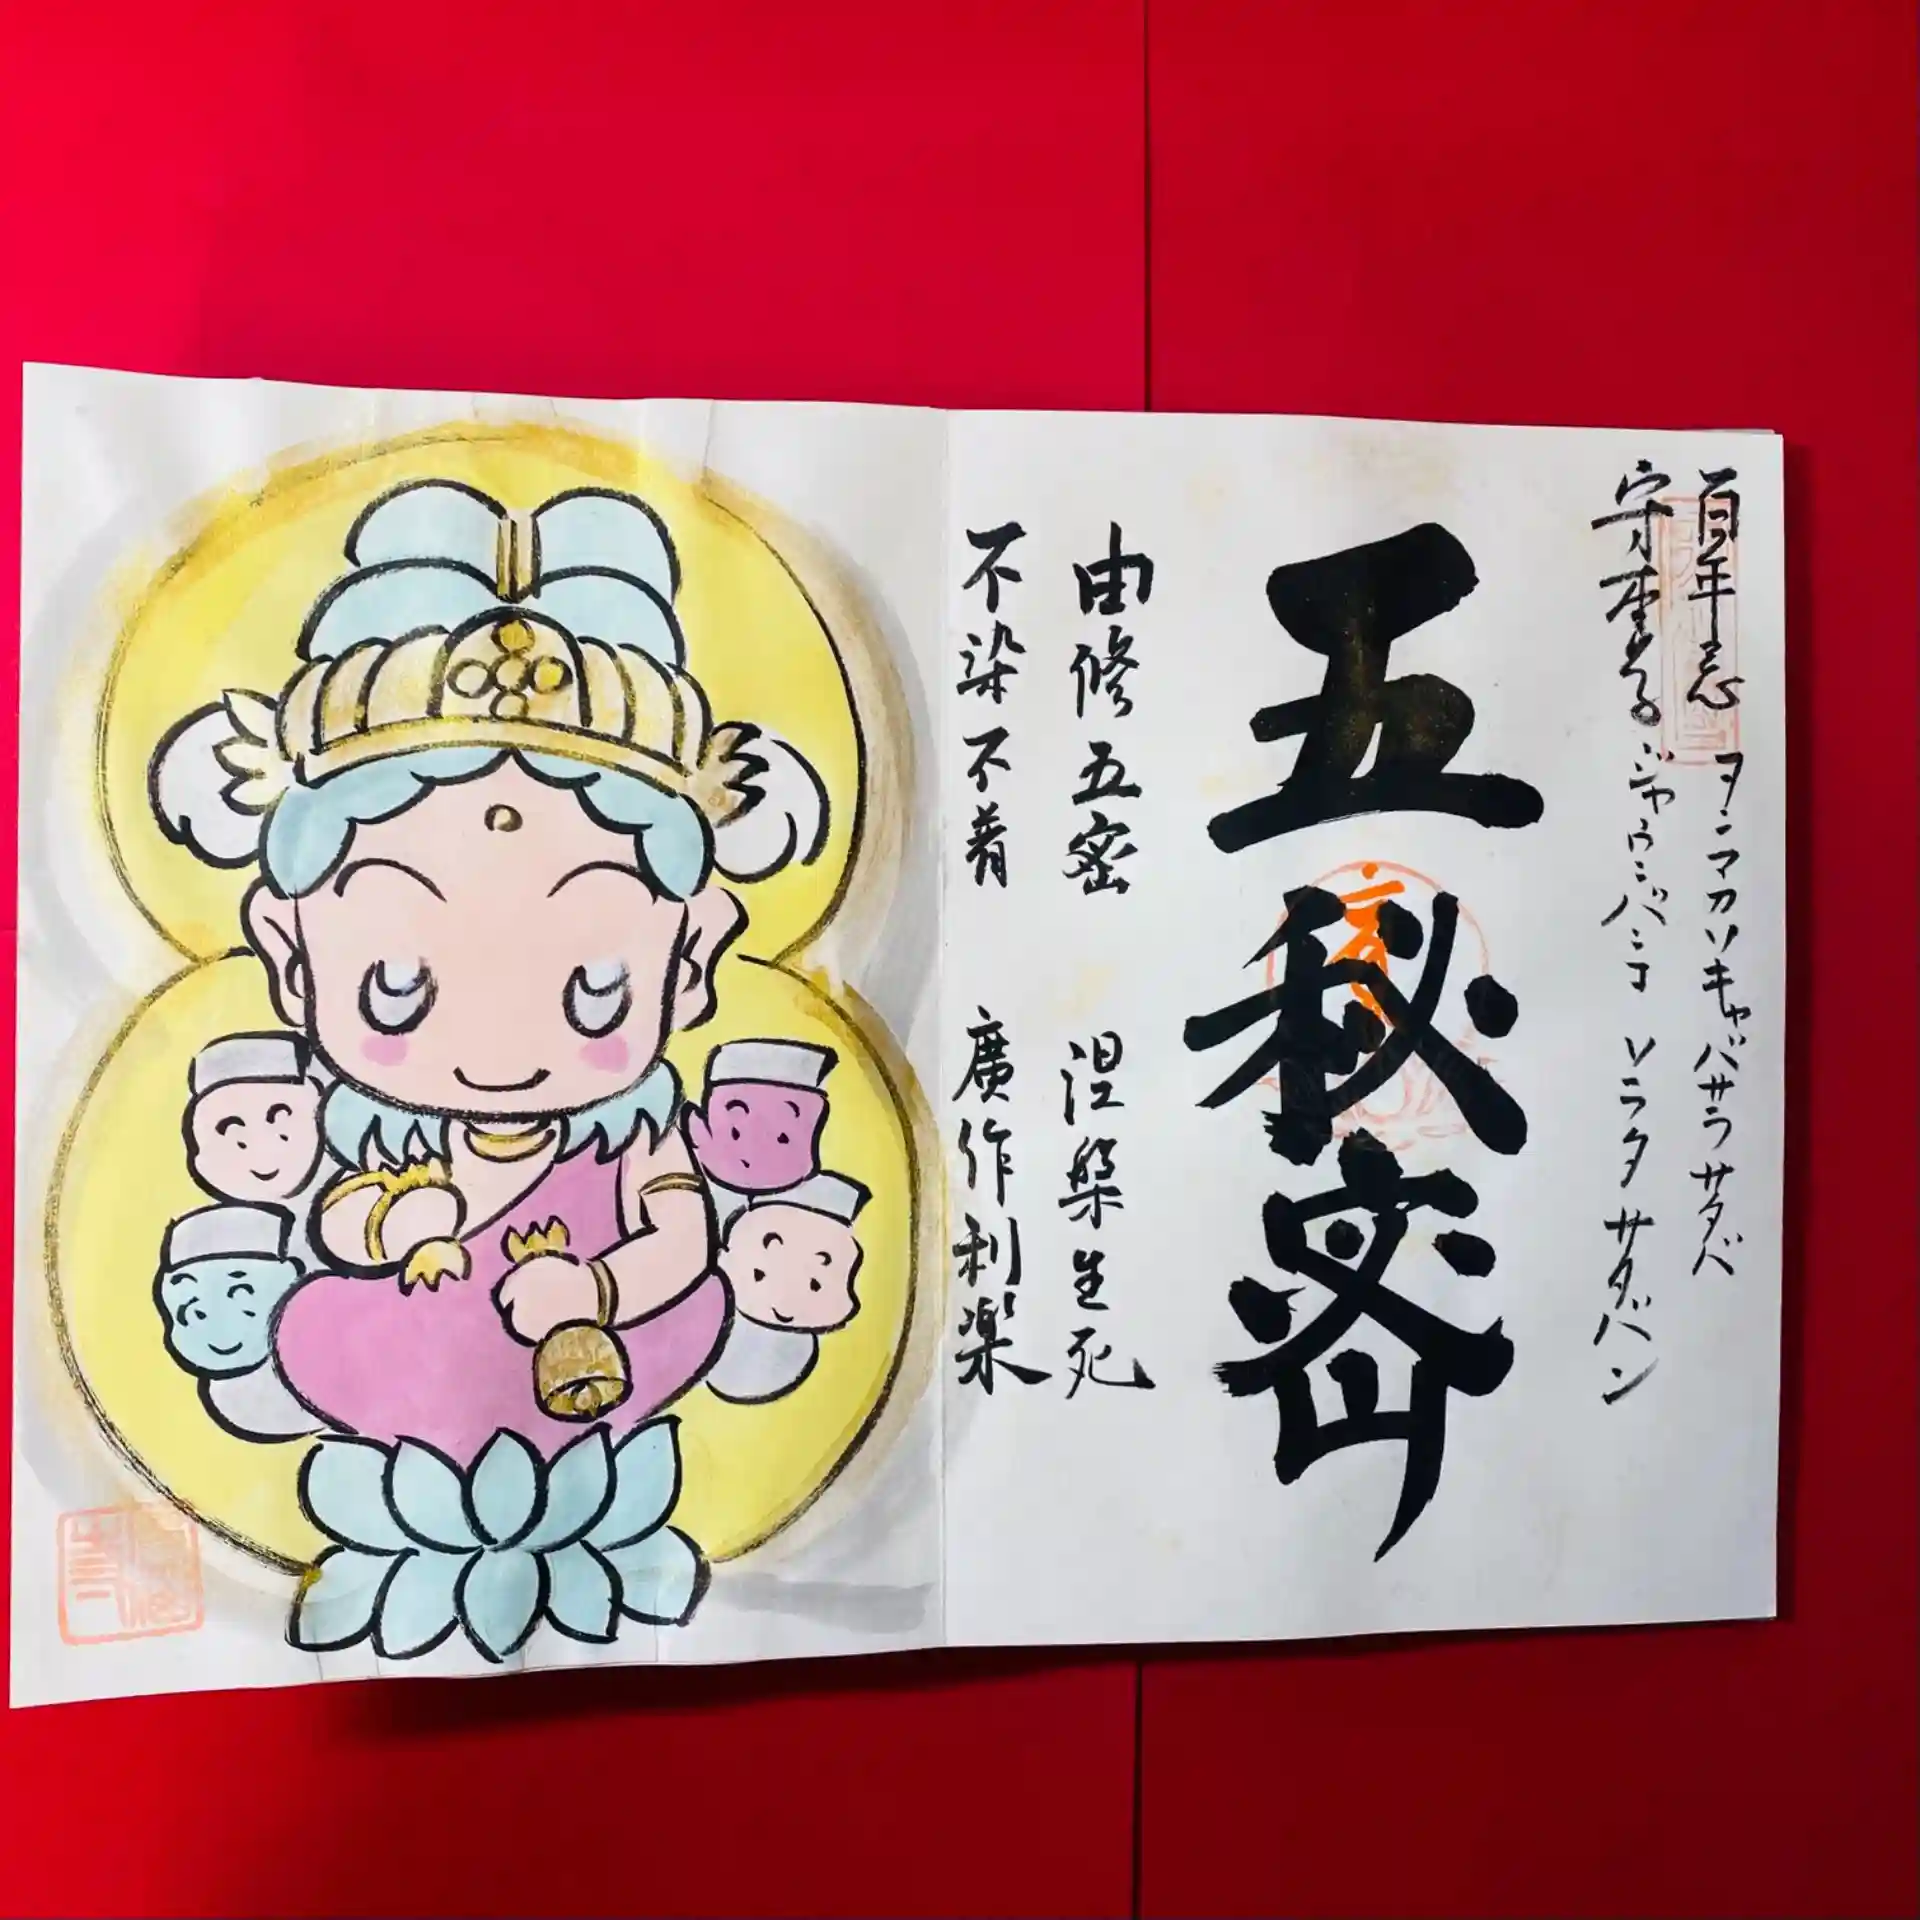 百年忌 ヲンマカソキャバサラサタバ
守本尊 ジャウンバンコ ソラタサタバン
五秘密
由修五密 涅槃生死
不染不着 廣作利楽